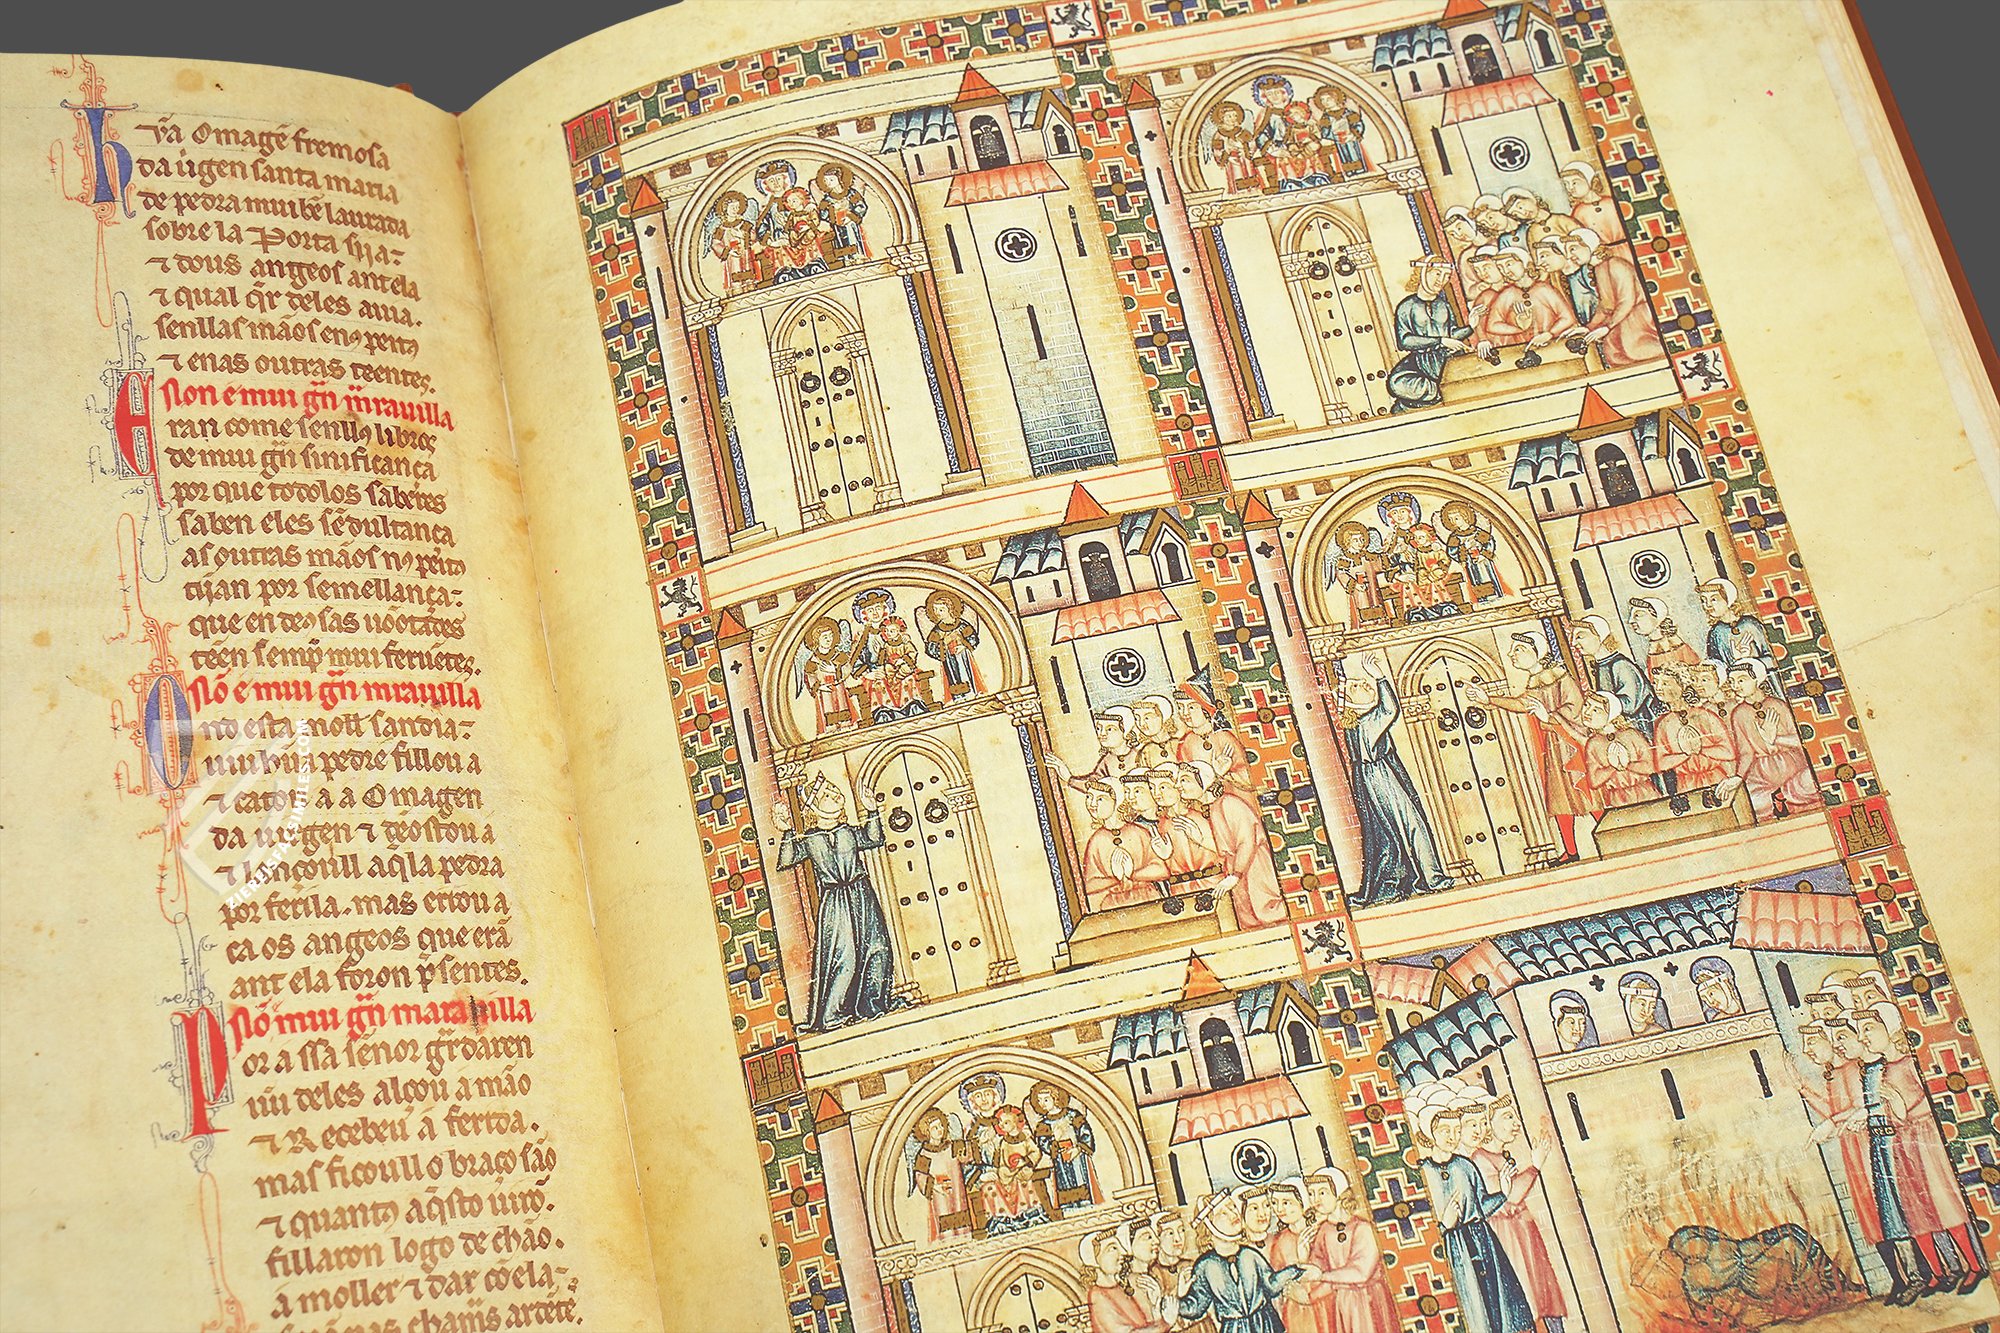 h vã Omagē fremosa
da uirgen santa maria
de pedra mui bē laurada
sobre la Porta sija⁊
⁊ dous angeos antela
⁊ qual q̄r deles auia.
senllas mãos en
⁊ enas outras teentes.
Non e mui grã marauilla
E ran come senllos libros
de mui grã sinificança
por que todolos saberes
saben eles sē dultança
as outras mãos nos peitos
tijan por semellança⁊
que en
teen sempr mui feruētes.
Nõ e mui grã marauilla
O nd esta moll sandia⁊
ũa pedra fillou a
⁊ catou a a Omagen
da uirgen ⁊ dẽostou a
⁊ lançoull aq̄la pedra
por ferila. mas errou a
ca os angeos que erã
ant ela foron p̄sentes.
Nõ mui grã marauilla
P or a ssa senor grdaren
ũu deles alçou a mão
⁊ Recebeu a ferida.
mas ficoull o braço são
⁊ quantos aq̄sto uirõ.
fillaron logo de chão.
a moller ⁊ dar cõela⁊
ZIEREISFACSIMILES.COM